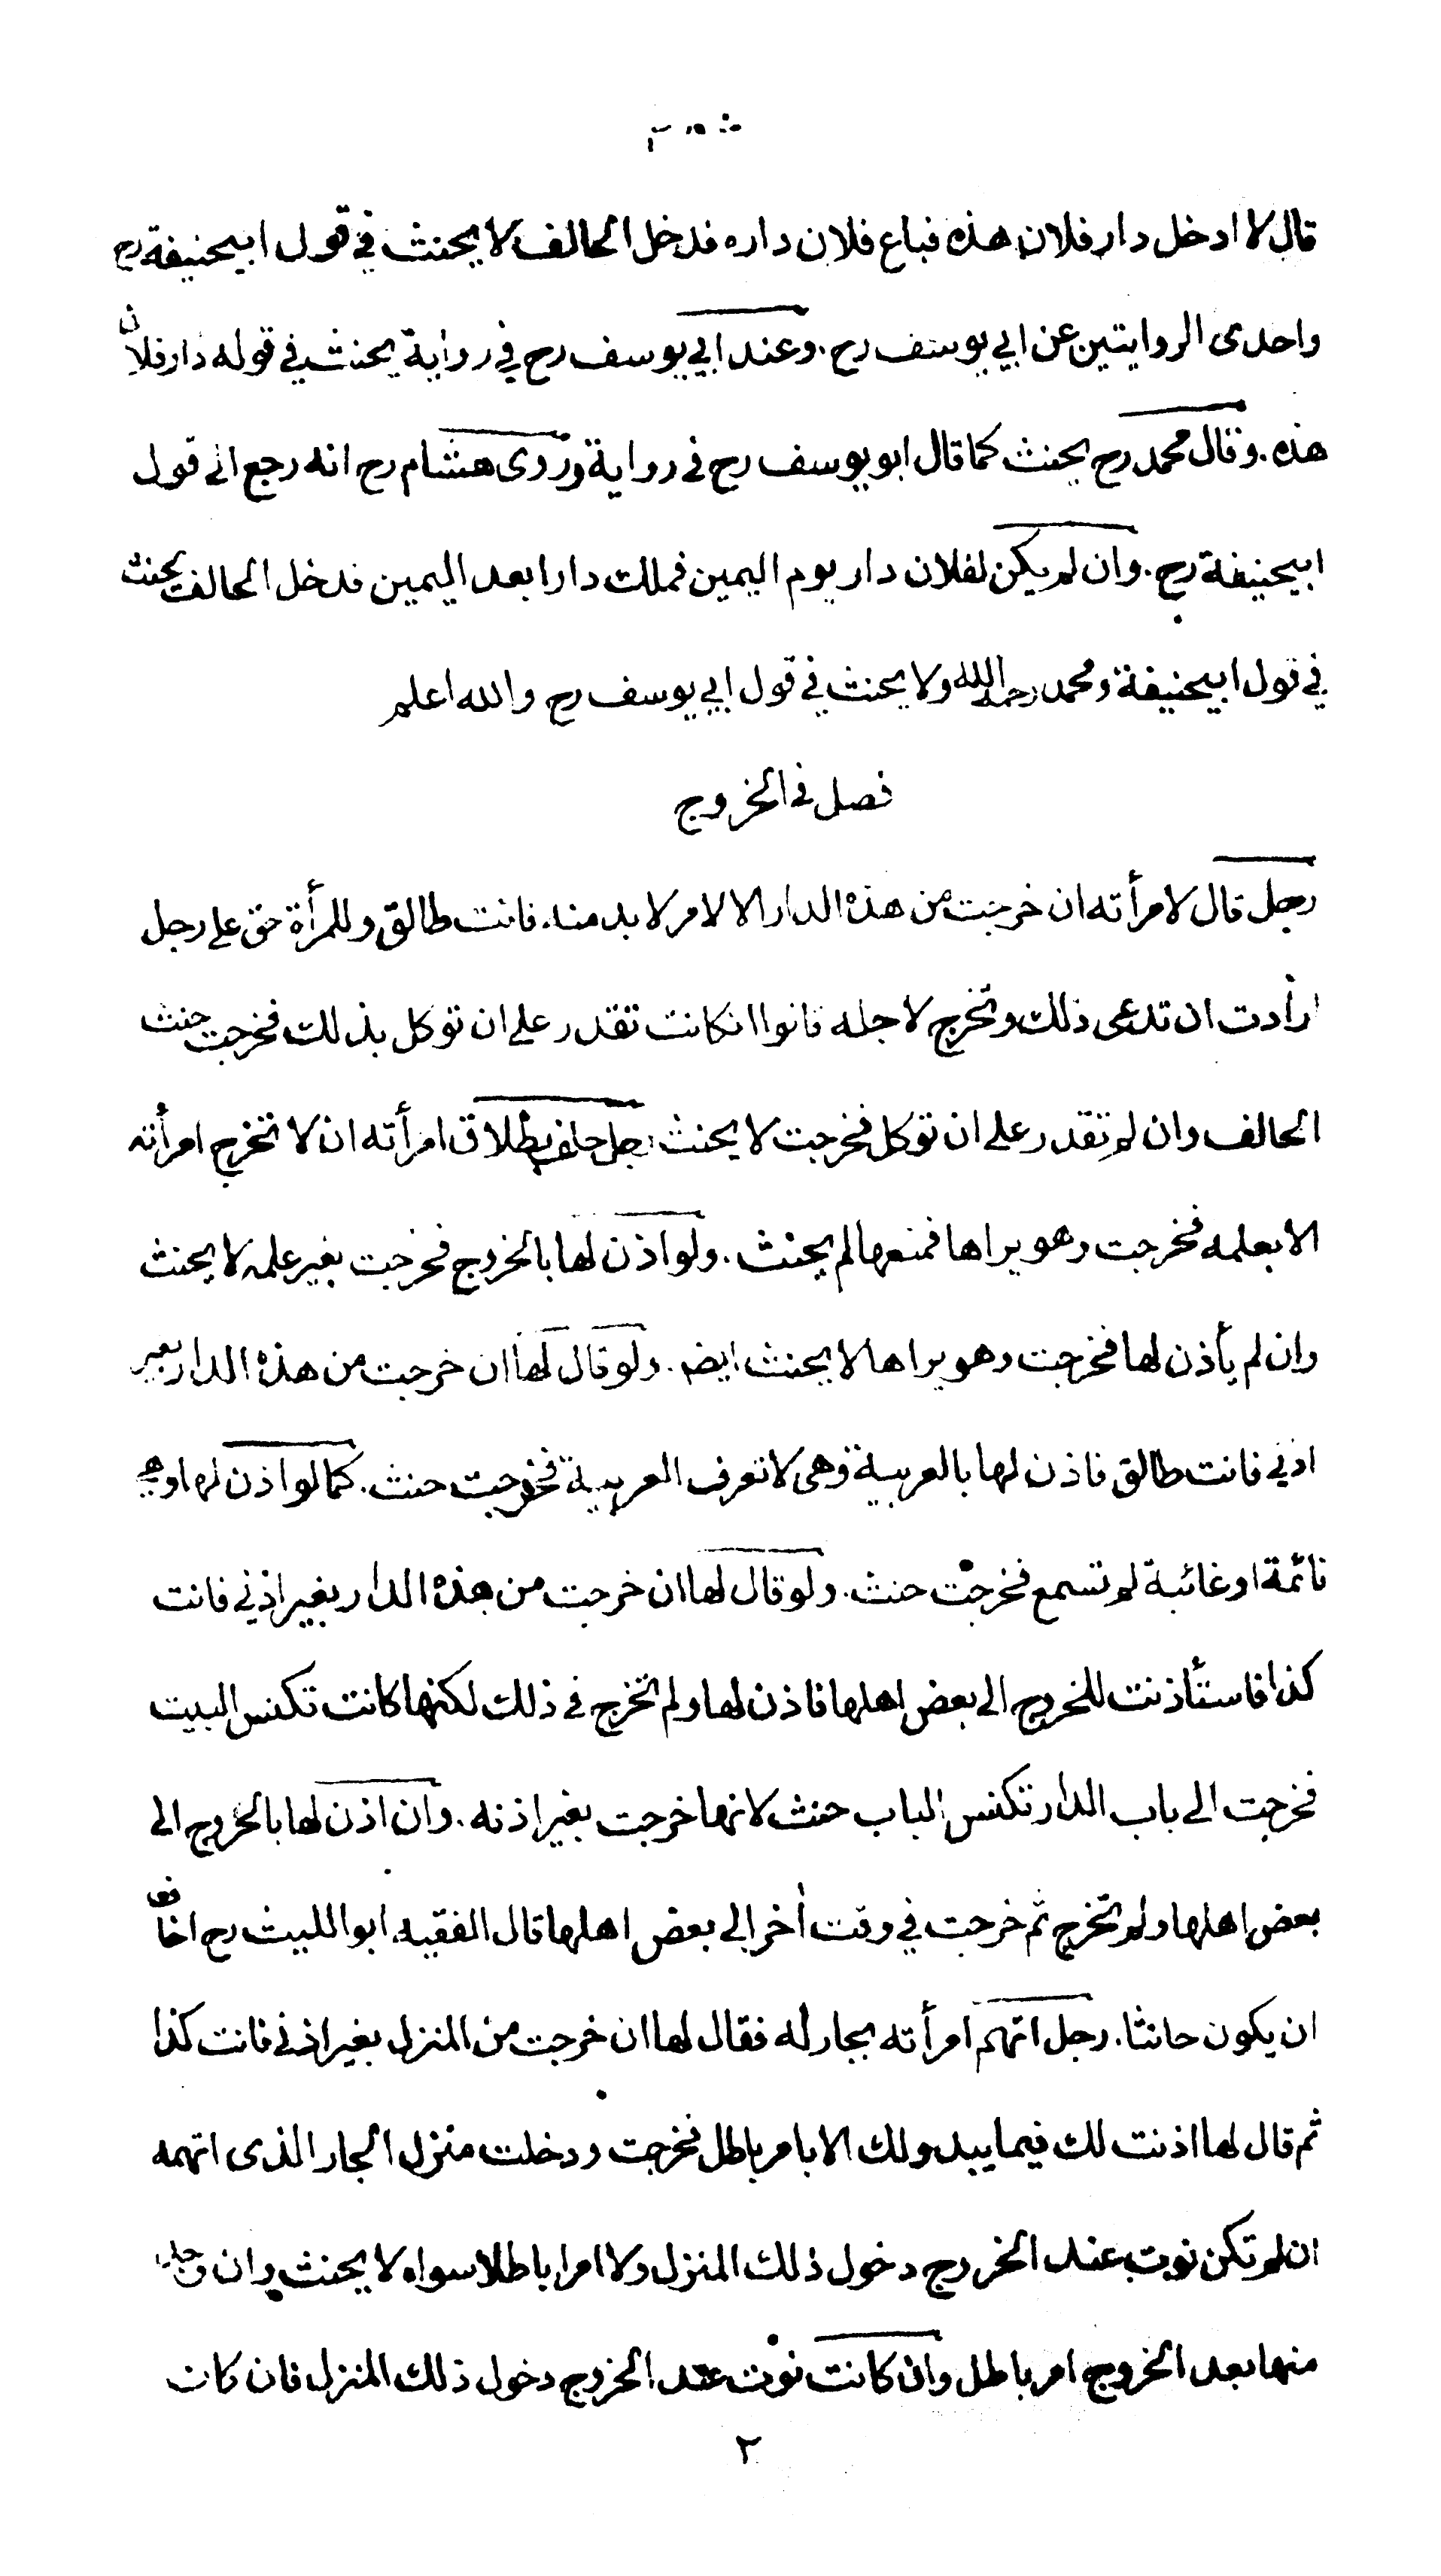 قال لا ادخل دار فلان هذه فباع فلان داره فدخل الحالف لا يحنث في قول ابيحنيفة رح
واحدى الروايتين عن ابي يوسف رح . وعند ابي يوسف رح في رواية يحنث في قوله دار فلان
هذه . وقال محمد رح يحنث كما قال ابو يوسف رح في رواية وروى هشام رح انه رجع الى قول
ابيحنيفة رح . وان لم يكن لفلان دار يوم اليمين فملك دارا بعد اليمين فدخل الحالف يحنث
في قول ابيحنيفة ومحمد رحمهما الله ولا يحنث في قول ابي يوسف رح والله اعلم
فصل في الخروج
رجل قال لامرأته ان خرجت من هذه الدار الا لامر لا بد منه فانت طالق وللمرأة حق على رجل
ارادت ان تدعى ذلك وتخرج لاجله قالوا انكانت تقدر على ان توكل بذلك فخرجت حنث
الحالف وان لم تقدر على ان توكل فخرجت لا يحنث رجل حلف بطلاق امرأته ان لا تخرج امرأته
الا بعلمه فخرجت وهو يراها فمنعها لم يحنث . ولو اذن لها بالخروج فخرجت بغير علمه لا يحنث
وان لم يأذن لها فخرجت وهو يراها لا يحنث ايضم . ولو قال لها ان خرجت من هذه الدار بغير
اذني فانت طالق فاذن لها بالعربية وهى لا تعرف العربية فخرجت حنث . كما لو اذن لها وهي
نائمة او غائبة لم تسمع فخرجت حنث . ولو قال لها ان خرجت من هذه الدار بغير اذني فانت
كذا فاستأذنت للخروج الى بعض اهلها فاذن لها ولم تخرج في ذلك لكنها كانت تكنس البيت
فخرجت الى باب الدار تكنس الباب حنث لانها خرجت بغير اذنه . وان اذن لها بالخروج الى
بعض اهلها ولم تخرج ثم خرجت في وقت أخر الى بعض اهلها قال الفقيه ابو الليث رح اخاف
ان يكون حانثا . رجل اتهم امرأته بجار له فقال لها ان خرجت من المنزل بغير اذنى فانت كذا
ثم قال لها اذنت لك فيما يبدو لك الا بامر باطل فخرجت ودخلت منزل الجار الذى اتهمه
ان لم تكن نوبت عند الخروج دخول ذلك المنزل ولا امرا باطلا سواه لا يحنث وان
منها بعد الخروج امر باطل وان كانت نوت عند الخروج دخول ذلك المنزل فان كان
٢